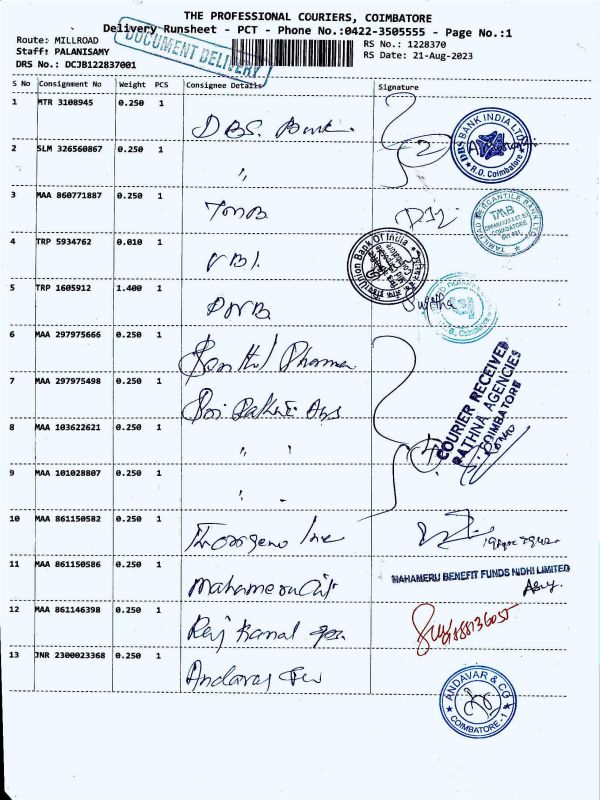 THE PROFESSIONAL COURIERS, COIMBATORE
Delivery Runsheet - PCT - Phone No.:0422-3505555 - Page No.:1
Route: MILLROAD
Staff: PALANISAMY
DRS No.: DCJB122837001
DOCUMENT DELIVERY
RS No.: 1228370
RS Date: 21-Aug-2023
S No Consignment No Weight PCS Consignee Details Signature
1 MTR 3108945 0.250 1 DBS. Bank
DBS BANK INDIA LTD
R.O. Coimbatore
2 SLM 326560867 0.250 1 "
2
3 MAA 860771887 0.250 1 TMB
TAMILNAD MERCANTILE BANK LTD
TMB
COIMBATORE
4 TRP 5934762 0.010 1 UBI.
Union Bank Of India
5 TRP 1605912 1.400 1 PNB
Swetha
6 MAA 297975666 0.250 1 Senthil Pharma
7 MAA 297975498 0.250 1
COURIER RECEIVED
RATHNA AGENCIES
COIMBATORE
8 MAA 103622621 0.250 1 " "
4
9 MAA 101028807 0.250 1 "
10 MAA 861150582 0.250 1
11 MAA 861150586 0.250 1
MAHAMERU BENEFIT FUNDS NIDHI LIMITED
12 MAA 861146398 0.250 1 Raj Kamal
13 JNR 2300023368 0.250 1 Andavar
ANDAVAR & CO
COIMBATORE - 1